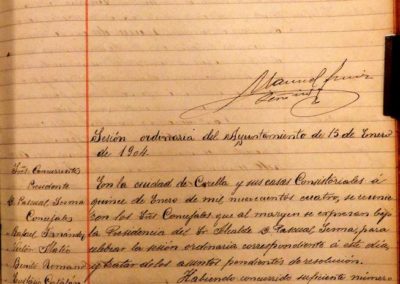 Manuel
Sesión ordinaria del Ayuntamiento de 15 de Enero
de 1904.
Sres. Concurrentes
Presidente
D. Pascual Serma
Concejales
Rafael Fernández
Mateo
Benito Romano
En la ciudad de Corella y sus casas Consistoriales á
quince de Enero de mil nuevecientos cuatro, se reunie
ron los Sres Concejales que al margen se expresan bajo
la Presidencia del Sr Alcalde D. Pascual Serma, para
celebrar la sesión ordinaria correspondiente á este dia,
y tratar de los asuntos pendientes de resolución.
Habiendo concurrido suficiente número